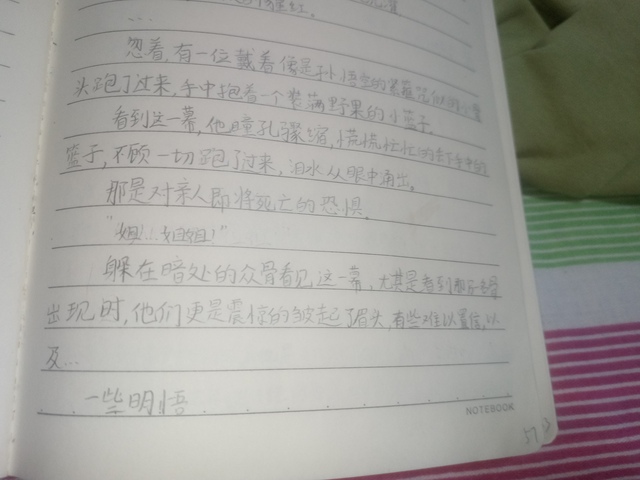 红.
...
忽着,有一位戴着像是孙悟空的紧箍咒似的小
头跑了过来,手中抱着一个装满野果的小篮子.
看到这一幕,他瞳孔骤缩,慌慌忙忙的手中的
篮子,不顾一切跑了过来,泪水从眼中涌出.
那是对亲人即将死亡的恐惧.
"姐!...姐姐!"
躲在暗处的众骨看见这一幕,尤其是看到
出现时,他们更是震惊的皱起了眉头,有些难以置信,以
及...
一些明悟
NOTEBOOK
57